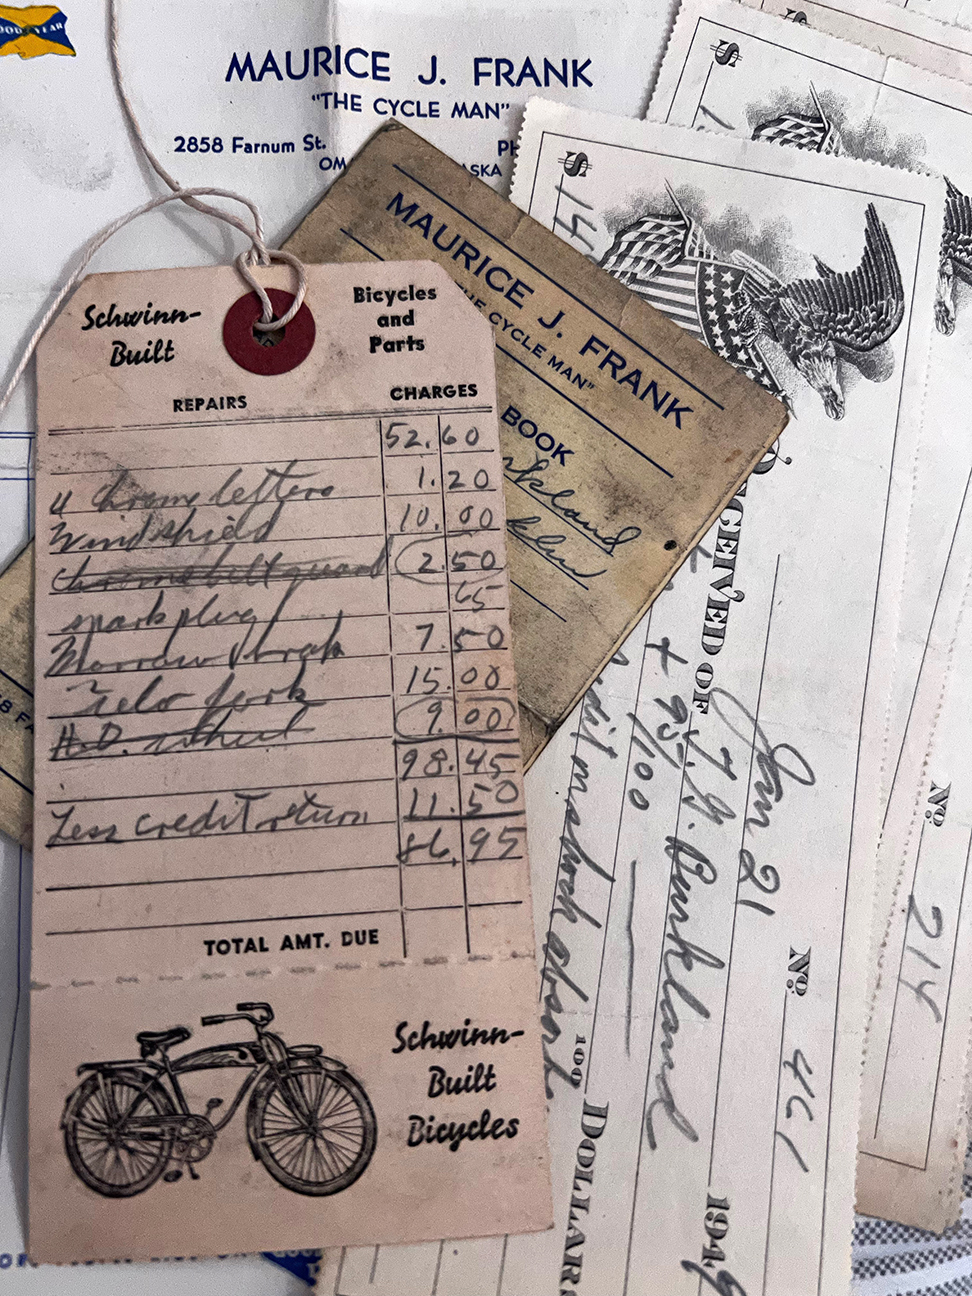 GOOD YEAR
MAURICE J. FRANK
"THE CYCLE MAN"
2858 Farnum St. PH
OM ASKA
MAURICE J. FRANK
HE CYCLE MAN"
BOOK
rkland
Schwinn-
Built
Bicycles
and
Parts
REPAIRS CHARGES
52.60
4 chrome letters 1.20
Windshield 10.00
chrome belt guard 2.50
spark plug 65
Morrow brak 7.50
fork 15.00
H.D. wheel 9.00
98.45
Less credit return 11.50
86.95
TOTAL AMT. DUE
Schwinn-
Built
Bicycles
$
$
No. 461
Jan 21 1949
CEIVED OF J. J. Burkland
+ 95/100
100 DOLLARS
No. 214